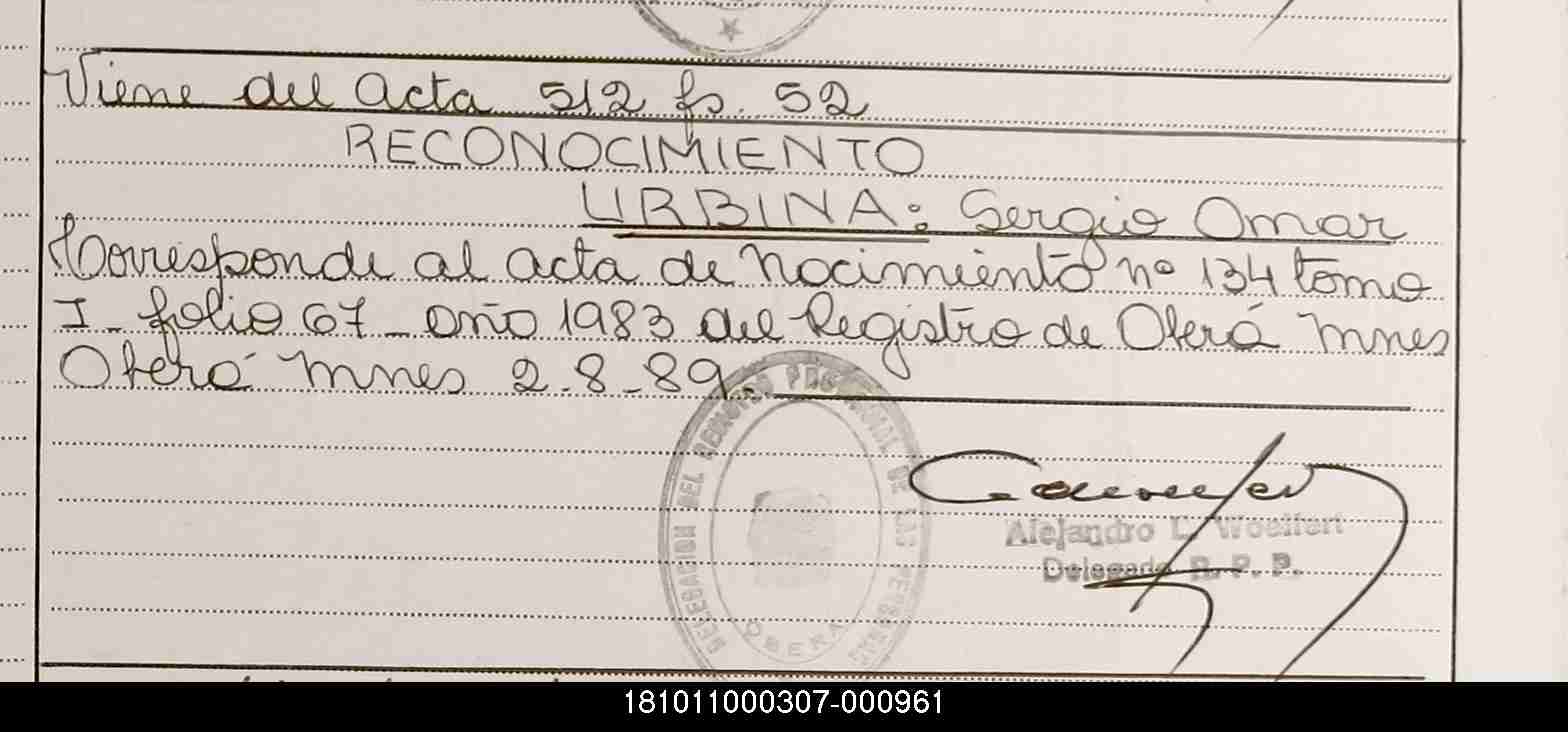 Viene del Acta 512 fs. 52
RECONOCIMIENTO
URBINA: Sergio Omar
Corresponde al acta de Nacimiento nº 134 tomo
I - folio 67 - año 1983 del Registro de Oberá Mnes
Oberá Mnes 2-8-89.
DELEGACION DEL REGISTRO PROVINCIAL DE LAS PERSONAS
OBERA
Alejandro L. Woelfert
Delegado R. P. P.
181011000307-000961